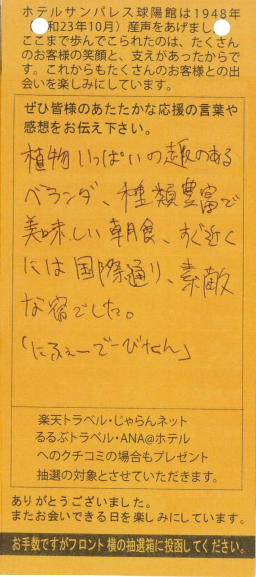 ホテルサンパレス球陽館は1948年
和23年10月）産声をあげまし
ここまで歩んでこられたのは、たくさん
のお客様の笑顔と、支えがあったからで
す。これからもたくさんのお客様との出
会いを楽しみにしています。
ぜひ皆様のあたたかな応援の言葉や
感想をお伝え下さい。
植物いっぱいの趣のある
ベランダ、種類豊富で
美味しい朝食、すぐ近く
には国際通り、素敵
な宿でした。
「にふぇーでーびたん」
楽天トラベル・じゃらんネット
るるぶトラベル・ANA@ホテル
へのクチコミの場合もプレゼント
抽選の対象とさせていただきます。
ありがとうございました。
またお会いできる日を楽しみにしています。
お手数ですがフロント横の抽選箱に投函してください。